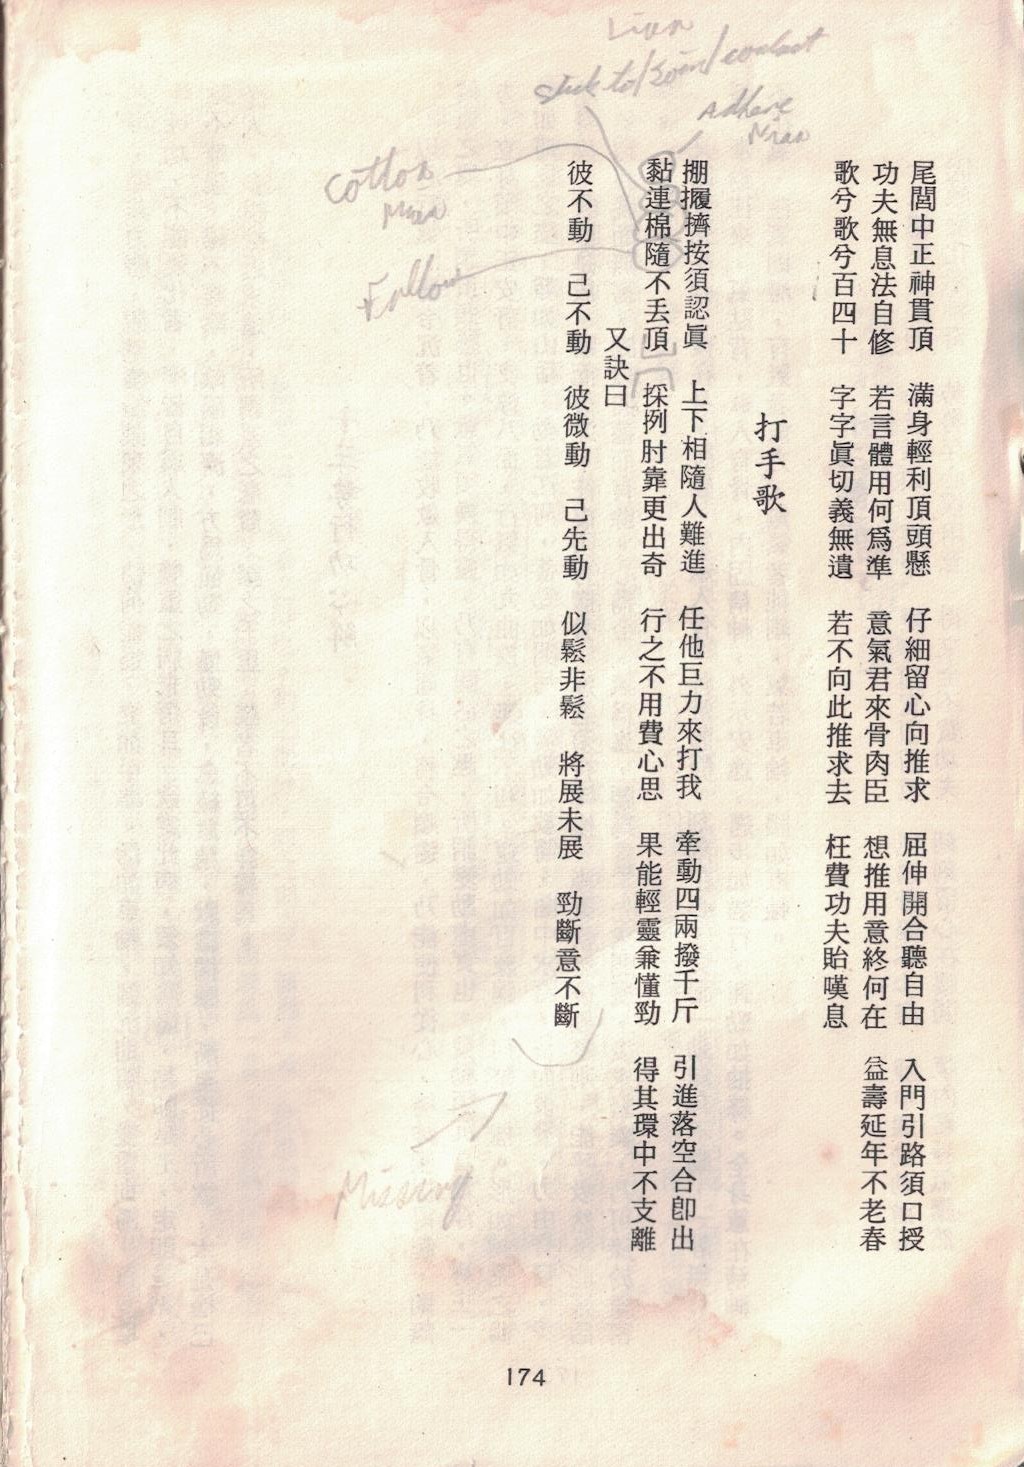 尾閭中正神貫頂　滿身輕利頂頭懸　仔細留心向推求　屈伸開合聽自由　入門引路須口授
功夫無息法自修　若言體用何爲準　意氣君來骨肉臣　想推用意終何在　益壽延年不老春
歌兮歌兮百四十　字字眞切義無遺　若不向此推求去　枉費功夫貽嘆息
打手歌
掤攌擠按須認眞　上下相隨人難進　任他巨力來打我　牽動四兩撥千斤　引進落空合卽出
黏連棉隨不丟頂　採挒肘靠更出奇　行之不用費心思　果能輕靈兼懂勁　得其環中不支離
又訣曰
彼不動　己不動　彼微動　己先動　似鬆非鬆　將展未展　勁斷意不斷
Lian
Stick to/Join/contact
Adhere
Nian
Cotton
Mian
Follow
Missing
174